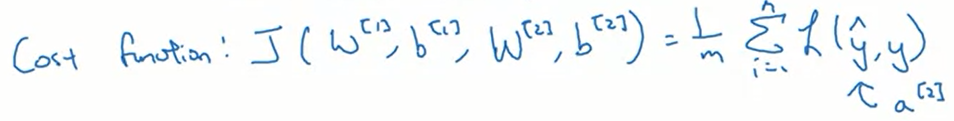 Cost function: J(W^[1], b^[1], W^[2], b^[2]) = 1/m ∑_{i=1}^{n} L(ŷ, y)
↖ a^[2]